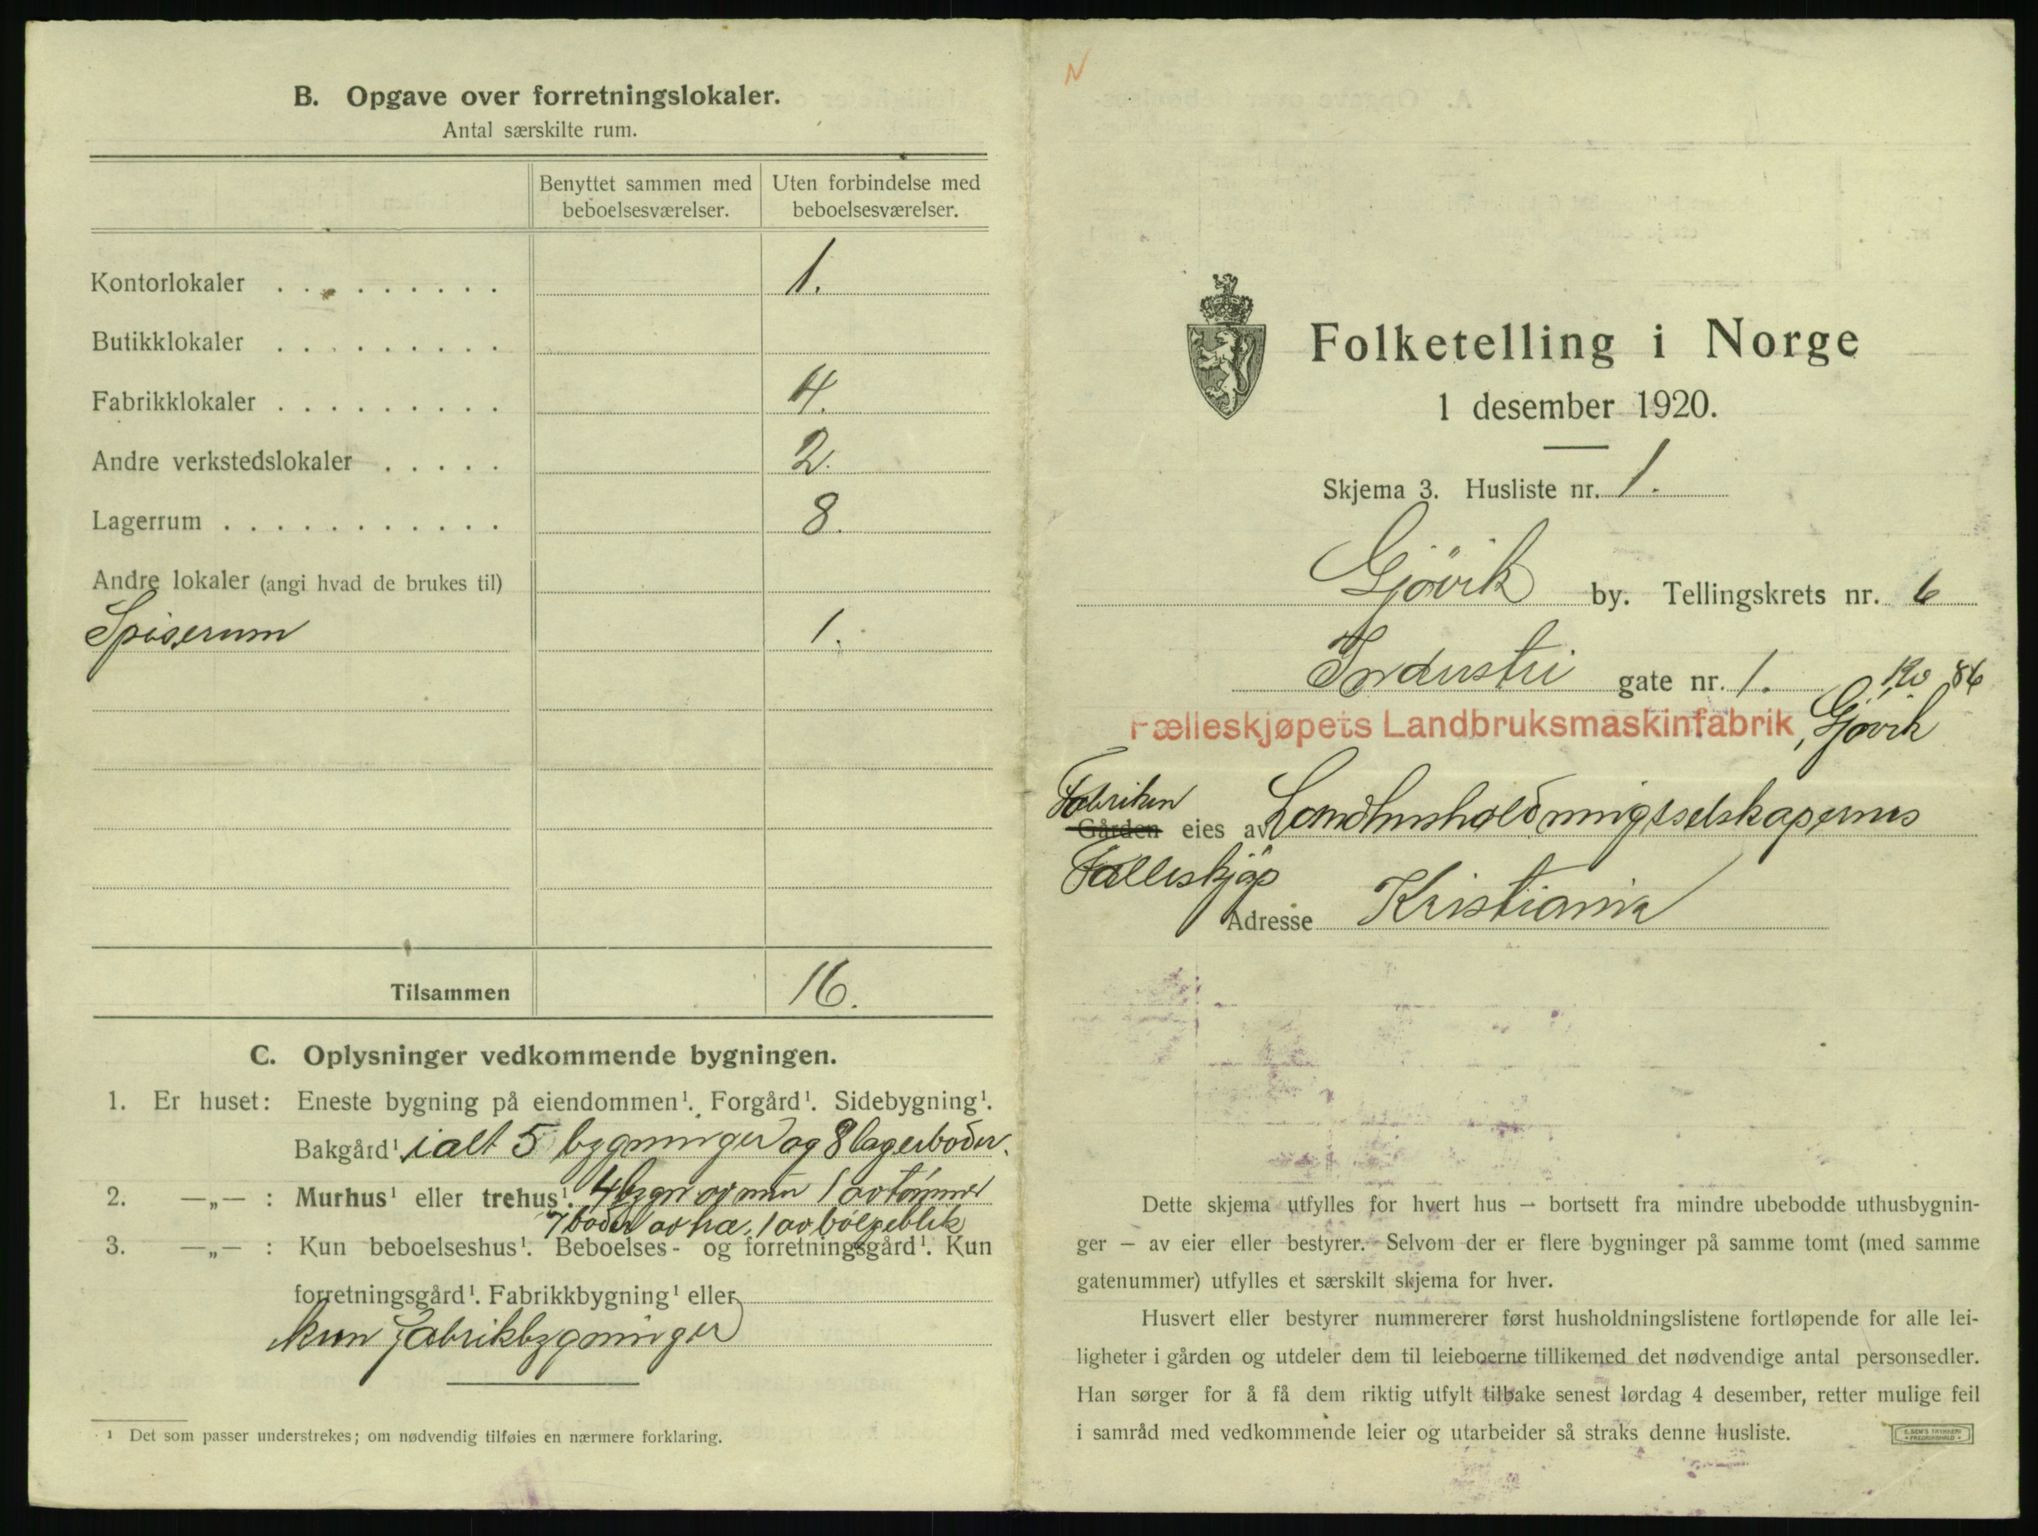 B. Opgave over forretningslokaler.
Antal særskilte rum.
Benyttet sammen med beboelsesværelser.
Uten forbindelse med beboelsesværelser.
Kontorlokaler . . . . . . . . . 1.
Butikklokaler . . . . . . . . .
Fabrikklokaler . . . . . . . . . 4.
Andre verkstedslokaler . . . . . 2.
Lagerrum . . . . . . . . . . . . 8.
Andre lokaler (angi hvad de brukes til)
Spiserum 1.
Tilsammen 16.
C. Oplysninger vedkommende bygningen.
1. Er huset: Eneste bygning på eiendommen¹. Forgård¹. Sidebygning¹.
Bakgård¹. ialt 5 bygninger og 8 lagerboder.
2. —„— : Murhus¹ eller trehus¹. 4 bygn av mur 1 av tömmer
7 boder av træ, 1 av bölgeblik
3. —„— : Kun beboelseshus¹. Beboelses- og forretningsgård¹. Kun
forretningsgård¹. Fabrikkbygning¹ eller
kun fabrikbygninger
¹ Det som passer understrekes; om nødvendig tilføies en nærmere forklaring.
N
Folketelling i Norge
1 desember 1920.
Skjema 3. Husliste nr. 1.
Gjövik by. Tellingskrets nr. 6
Industri gate nr. 1. 86
Fælleskjøpets Landbruksmaskinfabrik, Gjövik
Fabriken
Gården eies av Landhusholdningsselskapernes
Fælleskjöp
Adresse Kristiania
Dette skjema utfylles for hvert hus — bortsett fra mindre ubebodde uthusbygnin-
ger — av eier eller bestyrer. Selvom der er flere bygninger på samme tomt (med samme
gatenummer) utfylles et særskilt skjema for hver.
Husvert eller bestyrer nummererer først husholdningslistene fortløpende for alle lei-
ligheter i gården og utdeler dem til leieboerne tillikemed det nødvendige antal personsedler.
Han sørger for å få dem riktig utfylt tilbake senest lørdag 4 desember, retter mulige feil
i samråd med vedkommende leier og utarbeider så straks denne husliste.